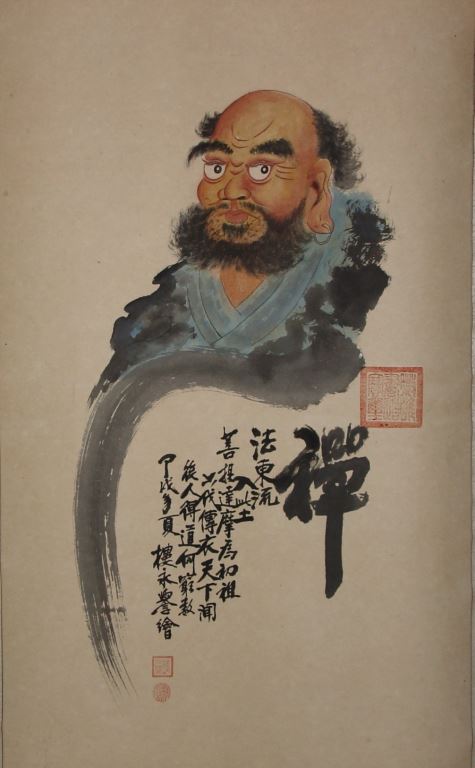 禪
法東流
入此土
菩提達摩為初祖
六代傳衣天下聞
後人得道何窮數
甲戌年夏 樓永譽繪